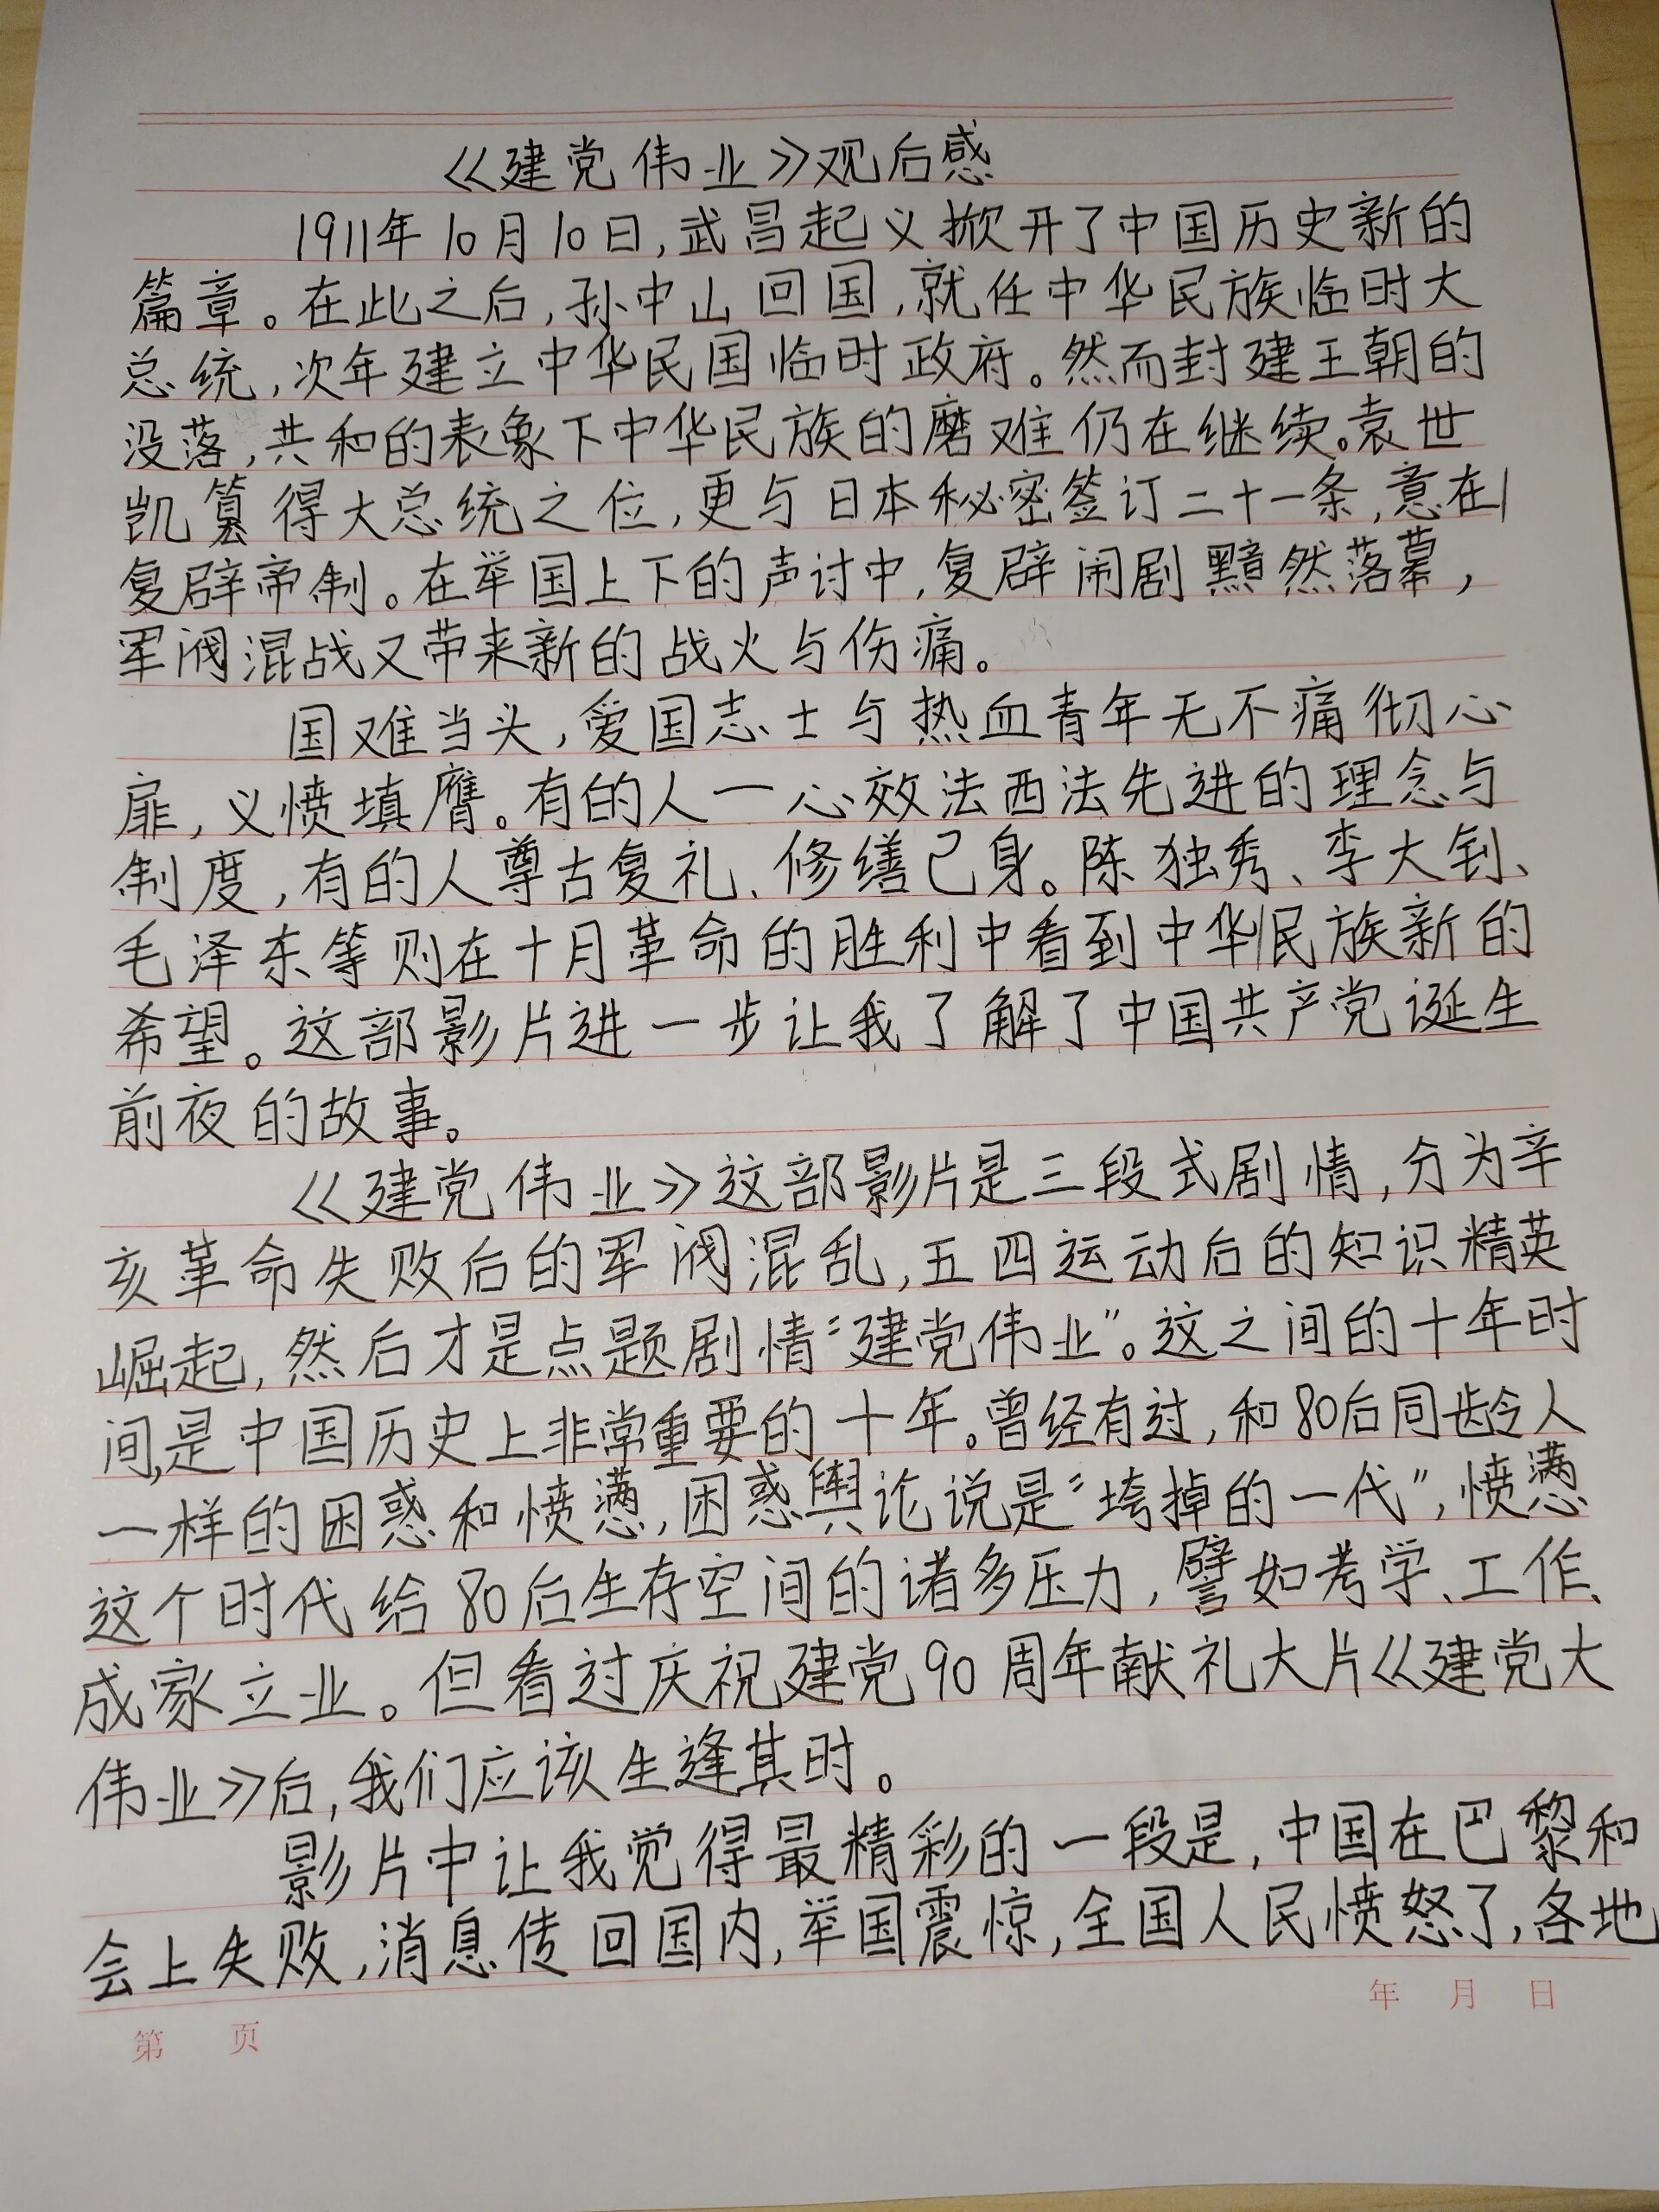 《建党伟业》观后感
1911年10月10日,武昌起义掀开了中国历史新的
篇章。在此之后,孙中山回国,就任中华民族临时大
总统,次年建立中华民国临时政府。然而封建王朝的
没落,共和的表象下中华民族的磨难仍在继续。袁世
凯篡得大总统之位,更与日本秘密签订二十一条,意在
复辟帝制。在举国上下的声讨中,复辟闹剧黯然落幕,
军阀混战又带来新的战火与伤痛。
国难当头,爱国志士与热血青年无不痛彻心
扉,义愤填膺。有的人一心效法西法先进的理念与
制度,有的人尊古复礼、修缮己身。陈独秀、李大钊、
毛泽东等则在十月革命的胜利中看到中华民族新的
希望。这部影片进一步让我了解了中国共产党诞生
前夜的故事。
《建党伟业》这部影片是三段式剧情,分为辛
亥革命失败后的军阀混乱,五四运动后的知识精英
崛起,然后才是点题剧情“建党伟业”。这之间的十年时
间,是中国历史上非常重要的十年。曾经有过,和80后同龄人
一样的困惑和愤懑,困惑舆论说是“垮掉的一代”,愤懑
这个时代给80后生存空间的诸多压力,譬如考学、工作、
成家立业。但看过庆祝建党90周年献礼大片《建党大
伟业》后,我们应该生逢其时。
影片中让我觉得最精彩的一段是,中国在巴黎和
会上失败,消息传回国内,举国震惊,全国人民愤怒了,各地
年 月 日
第 页